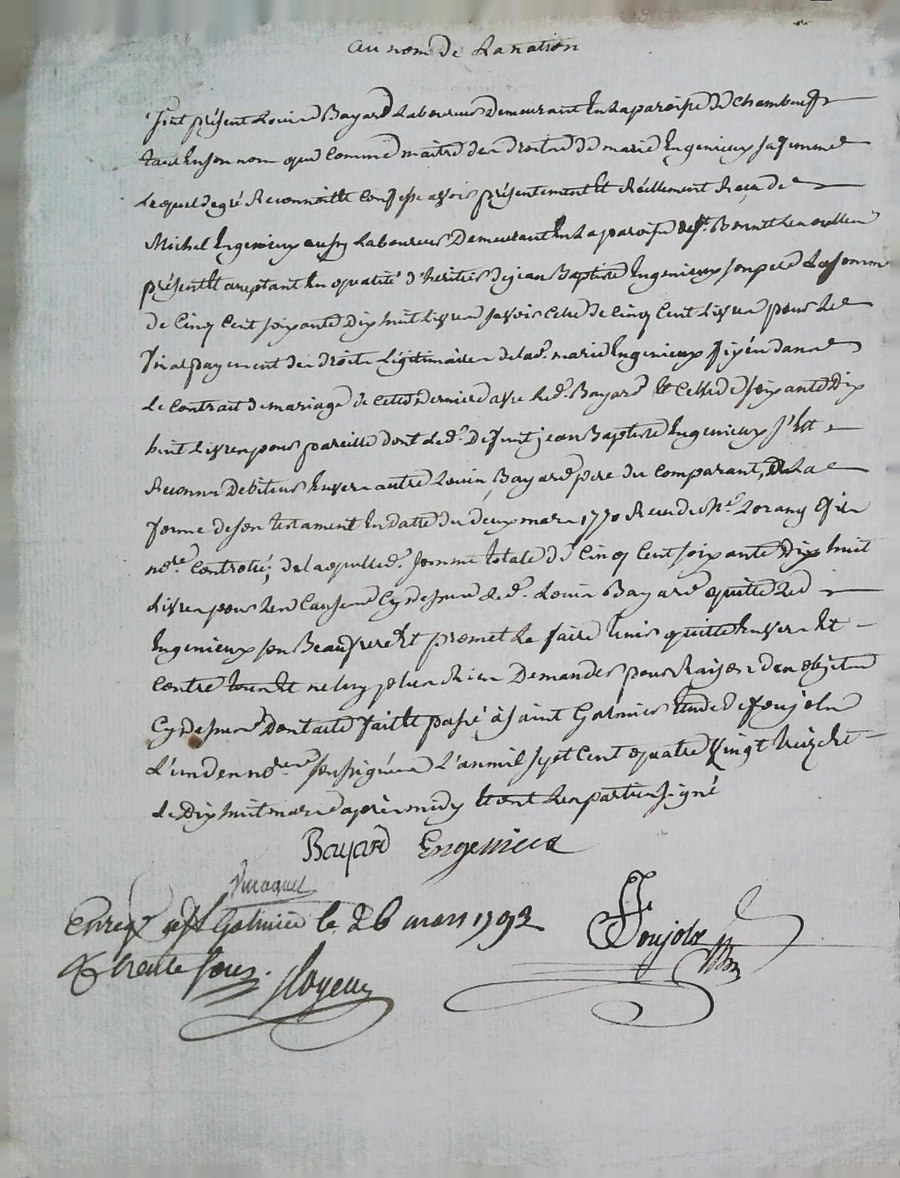 au nom de La nation
fut présent Louis Bayard Laboureur demeurant En La paroisse de Chambeuf
tant En son nom que Comme maitre des droits de marie Ingenieux sa femme
Lequel de gré Reconnoit et Confesse avoir présentement Et Réellement Reçu de
Michel Ingenieux aussy Laboureur Demeurant En La paroisse de St. Bonnet Les oulles
présent Et aceptant En qualité d'heritier de jean Baptiste Ingenieux son pere La somme
de Cinq Cent soixante Dix huit Livres savoir Celle de Cinq Cent Livres pour Le
final payement des droits Légitimaires de lad. marie Ingenieux fixés dans
Le Contrait de mariage de Cette Derniere avec Led. Bayard Et Celle de soixante Dix
huit Livres pour pareille dont Led. Defunt jean Baptiste Ingenieux s'Est
Reconnu Debiteur Envers autre Louis Bayard pere du Comparant, De La
forme de son testament En datte du deux mars 1770 Recu de Me
nore. Controlé; de laquelle d. somme totale de Cinq Cent soixante Dix huit
Livres pour Les Causes Cy dessus Led. Louis Bayard quitte Led
Ingenieux son Beaufrere Et promet Le faire tenir quitte Envers Et
Contre tous Et ne luy plus Rien Demander pour Raison des objets
Cy dessus Dont acte fait Et passé à Saint Galmier Etude de foujols
L'un des nores. soussignés L'an mil sept Cent quatre Vingt treize Et
Le Dix huit mars après midy Et ont Les parties signé
Bayard Engenieux
Enregt. a St Galmier le 26 mars 1793
R trente sous.
Foujols